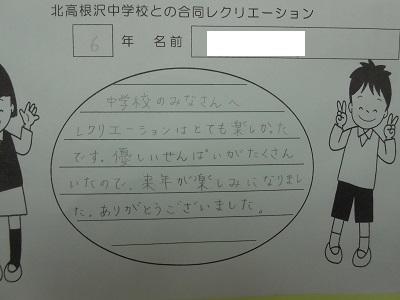 北高根沢中学校との合同レクリエーション
6 年 名前
中学校のみなさんへ
レクリエーションはとても楽しかった
です。優しいせんぱいがたくさん
いたので、来年が楽しみになりまし
た。ありがとうございました。